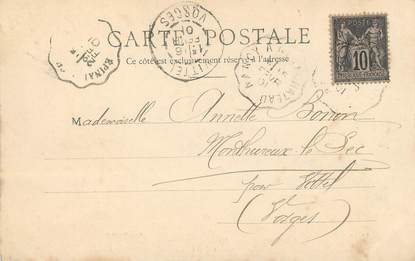 CARTE POSTALE
Ce côté est exclusivement réservé à l'adresse
VITTEL
VOSGES
EPINAL
POSTES
10
Mademoiselle Annette Bonin
Monthureux-le-Sec
par Vittel
(Vosges)